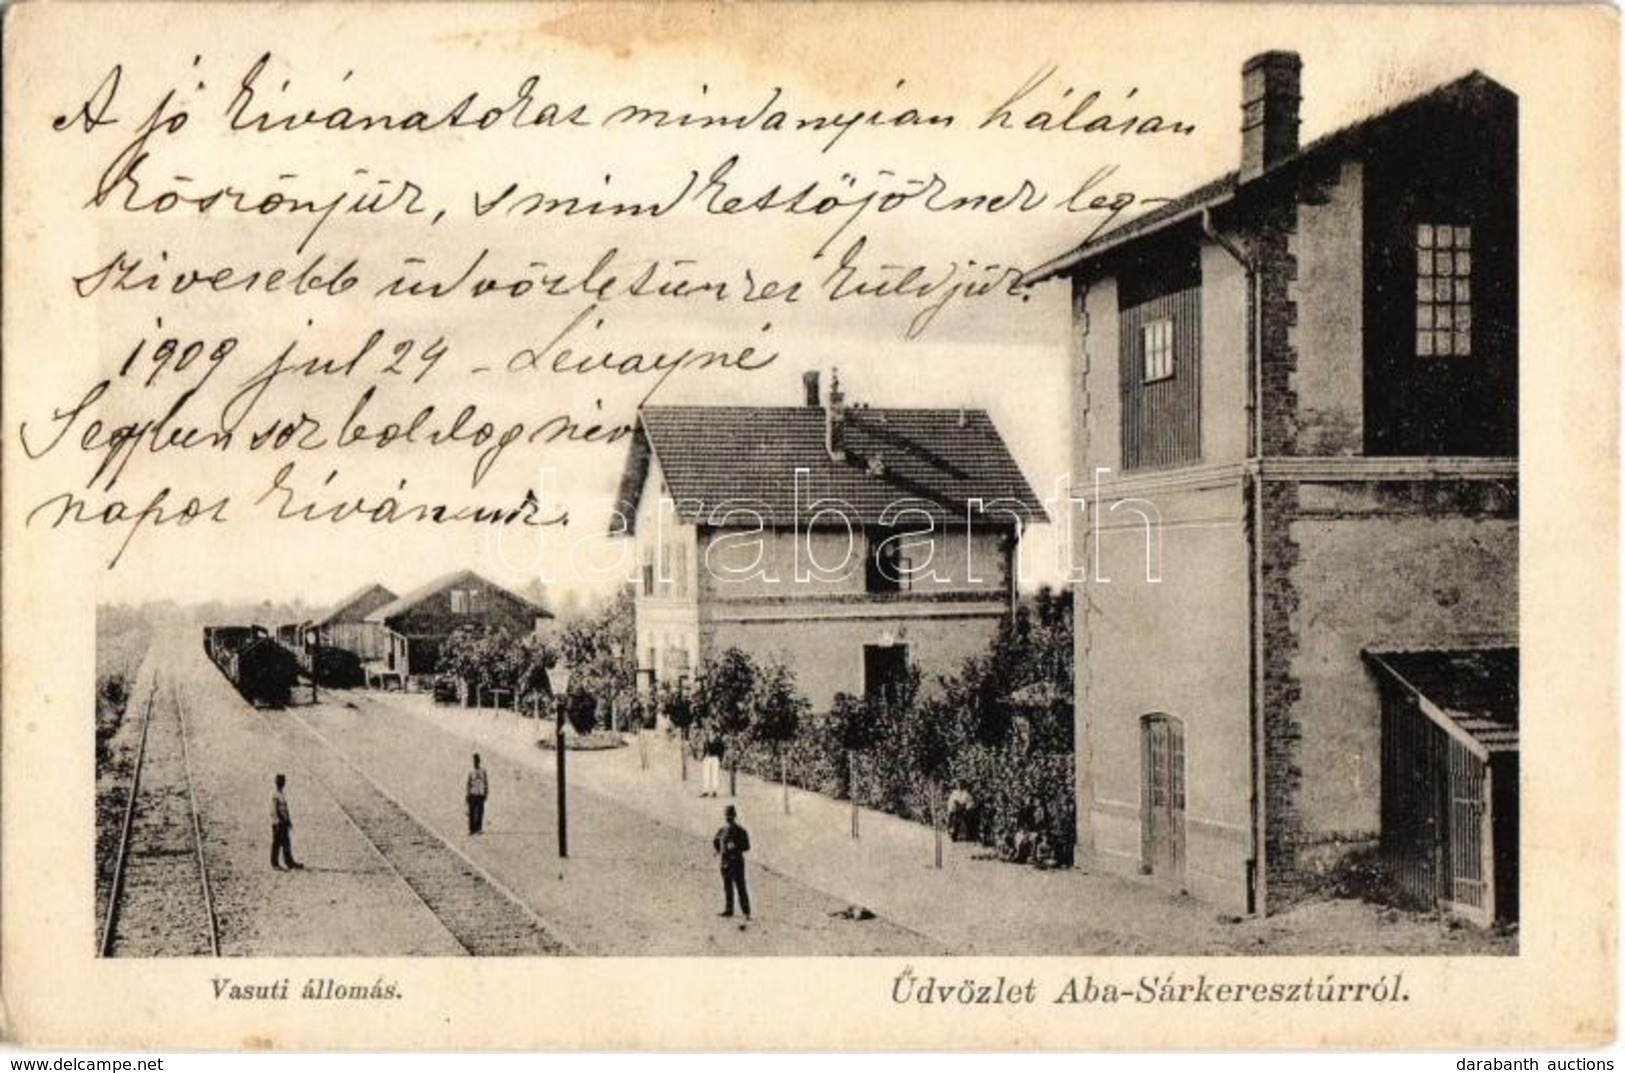 A jó kívánatokat mindanyian hálásan
köszönjük, s mindkettőjöknek leg-
szivesebb üdvözletünket küldjük.
1909 jul 24 - Lévayné
boldog név
napot kívánunk.
darabanth
Vasuti állomás.
Üdvözlet Aba-Sárkeresztúrról.
delcampe.net
darabanth auctions